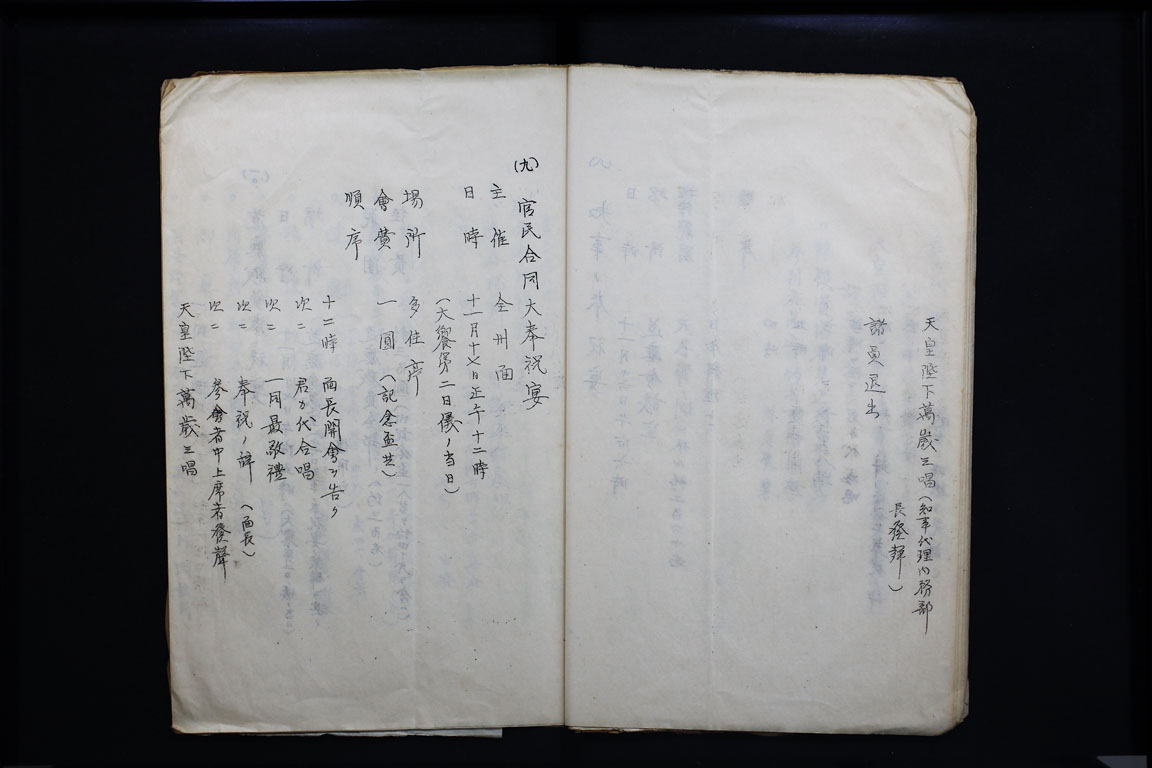 天皇陛下萬歲三唱(知事代理内務部
長發聲)
諸員退出
(九) 官民合同大奉祝宴
主催 全州面
日時 十一月十七日正午十二時
(大饗第二日儀ノ當日)
場所 多佳亭
會費 一圓 (記念盃共)
順序
十二時 面長開會ヲ告ク
次ニ 君カ代合唱
次ニ 一同最敬禮
次ニ 奉祝ノ辭 (面長)
次ニ 參會者中上席者發聲
天皇陛下萬歲三唱